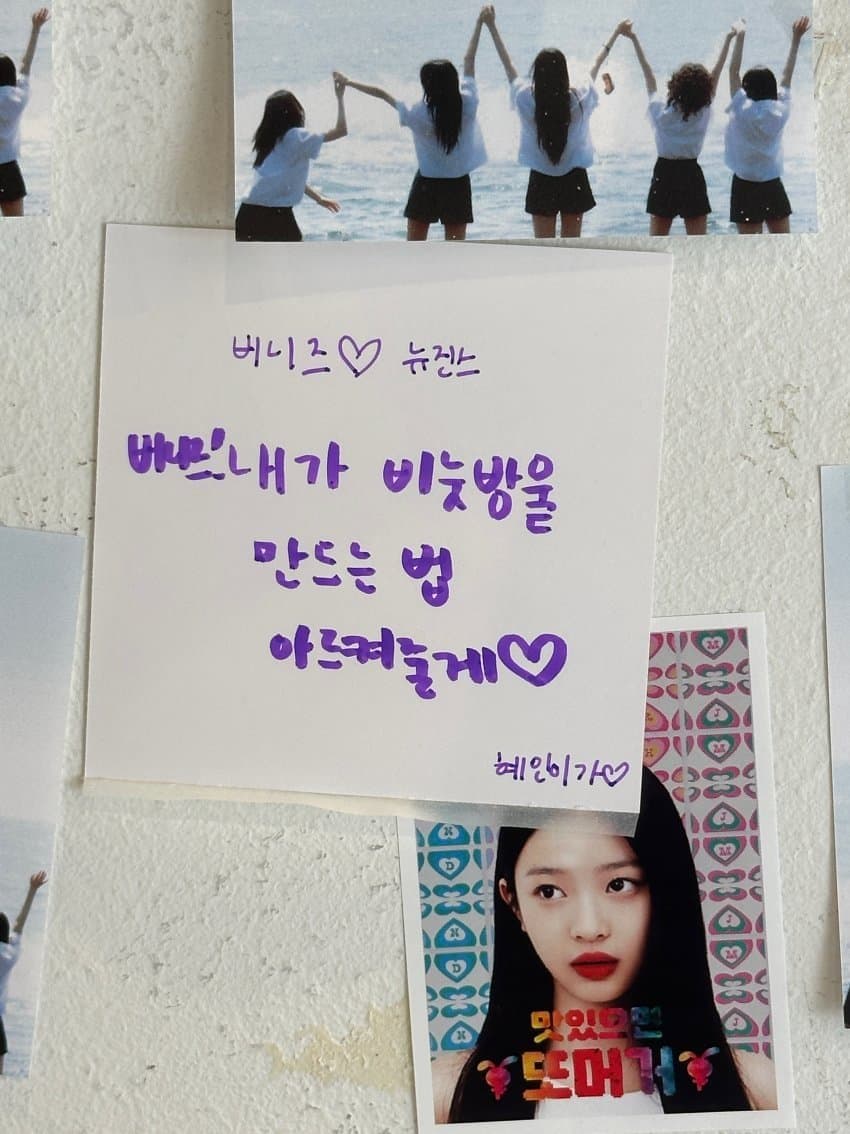 버니즈♡ 뉴진스
버니즈! 내가 비눗방울
만드는 법
아르켜줄게♡
혜인이가♡
맛있으면
또머거